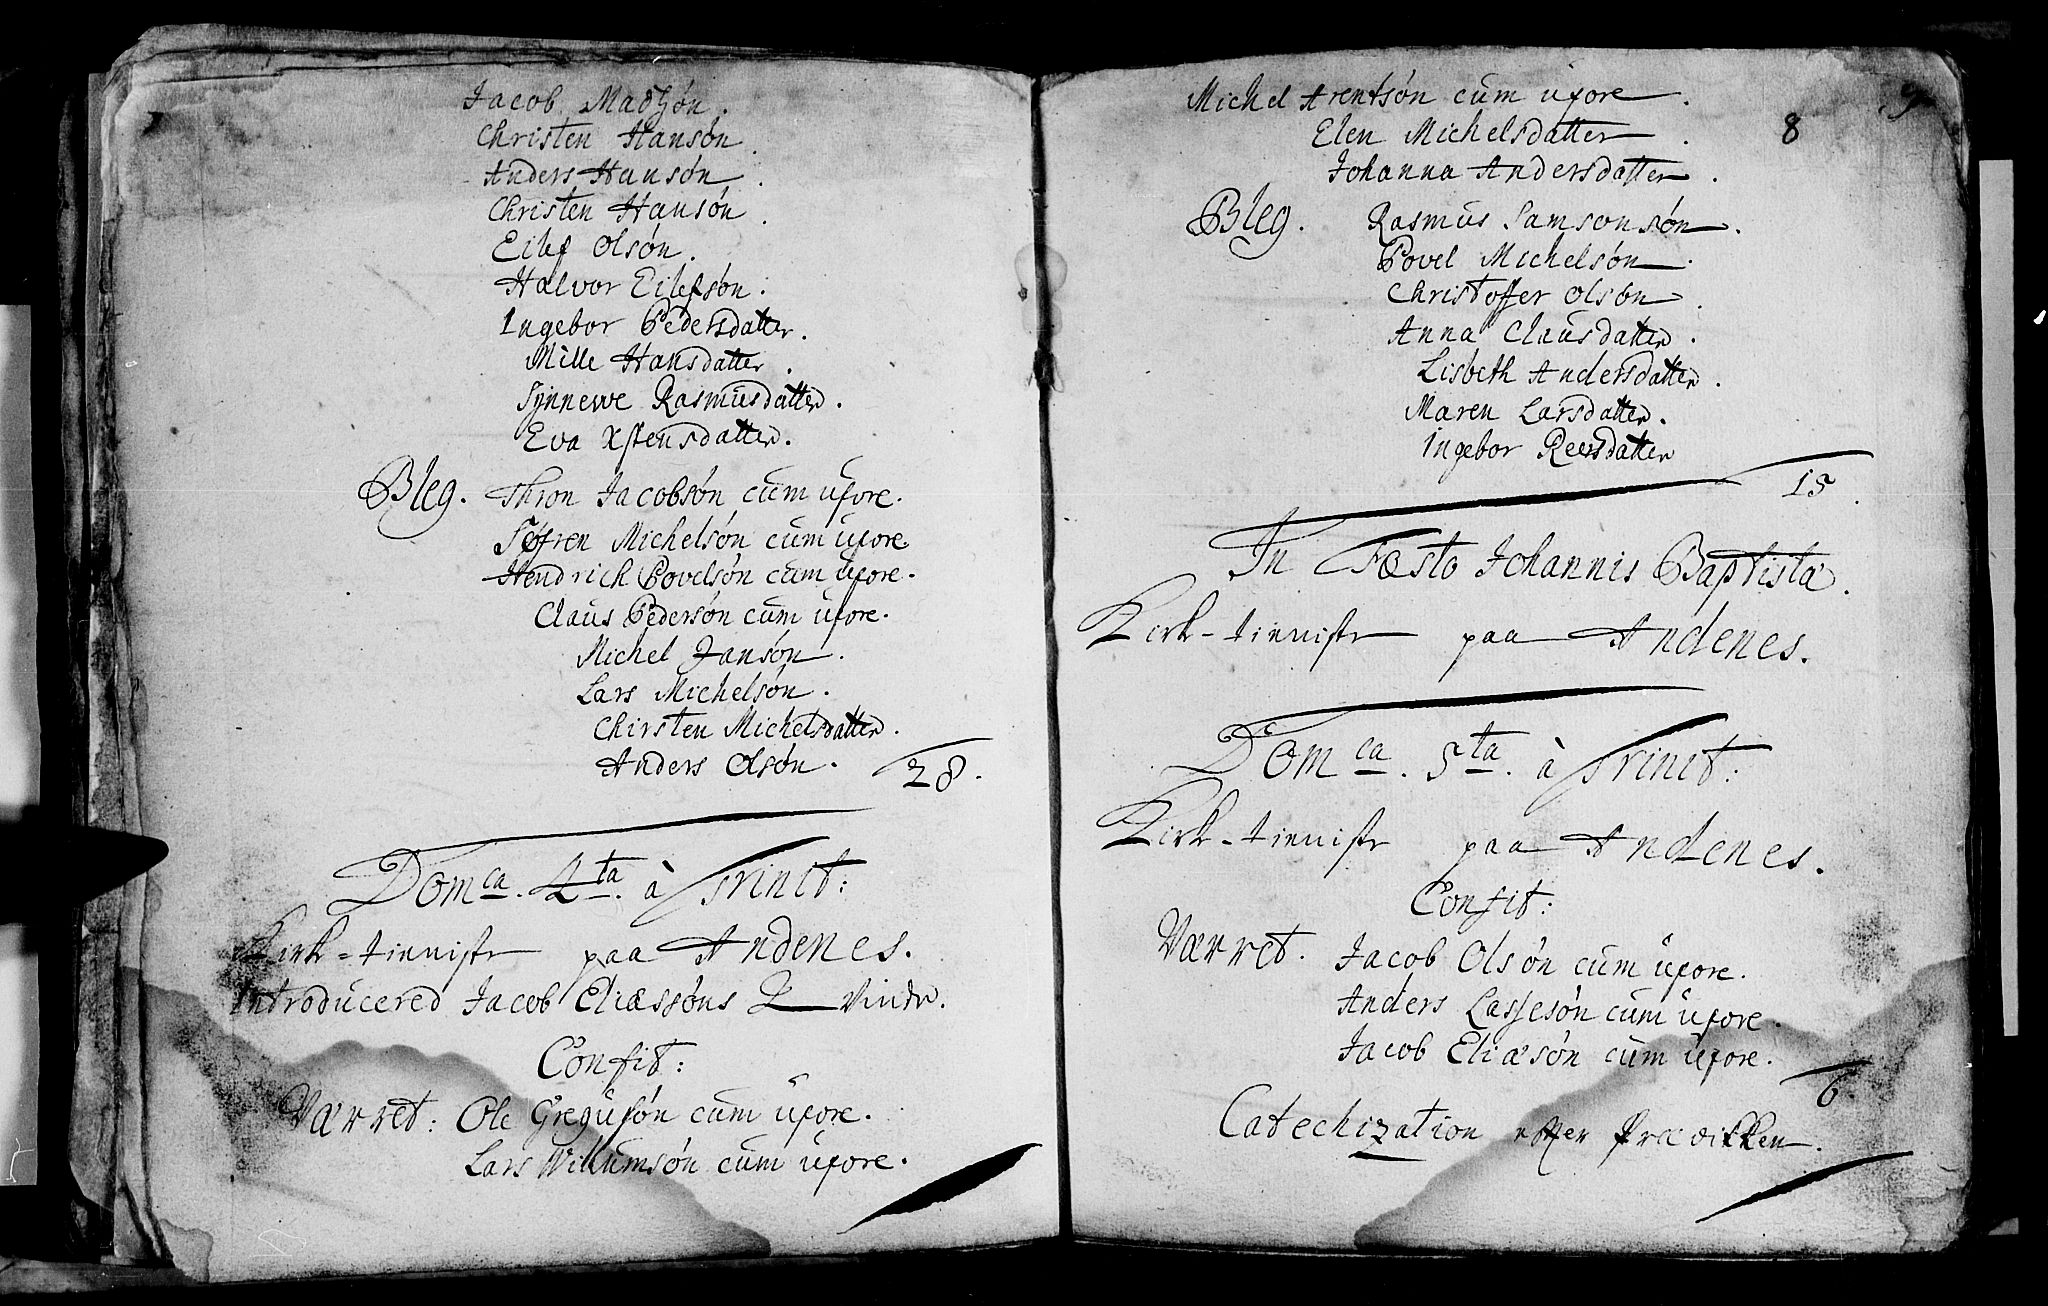 Jacob Madsøn.
Christen Hansøn.
Anders Hansøn.
Christen Hansøn.
Eilef Olsøn.
Halvor Eilefsøn.
Ingebor Pedersdatter.
Mille Hansdatter.
Synnewe Rasmusdatter.
Eva Xstensdatter.
Bleg. Thron Jacobsøn cum uxore.
Søfren Michelsøn cum uxore
Hendrich Povelsøn cum uxore.
Claus Pedersøn cum uxore.
Michel Jansøn.
Lars Michelsøn.
Chirsten Michelsdatter.
Anders Olsøn. 28.
Dom ca. 4 ta. à Trinit:
Kirk-tienist paa Andenes.
Introducered Jacob Eliæssøns
Confit:
Værret: Ole Gregusøn cum uxore.
Lars Willumsøn cum uxore.
9
8
Michel Arentsøn cum uxore.
Elen Michelsdatter.
Johanna Andersdatter.
Bleg. Rasmus Samsonsøn.
Povel Michelsøn.
Christoffer Olsøn.
Anna Clausdatter.
Lisbeth Andersdatter.
Maren Larsdatter.
Ingebor Reersdatter
15.
In Fæsto Johannis Baptistæ.
Kirk-tienist paa Andenes.
Dom ca. 5 ta. à Trinit:
Kirk-tienist paa Andenes.
Confit:
Værret. Jacob Olsøn cum uxore.
Anders Lassesøn cum uxore.
Jacob Eliæsøn cum uxore.
6.
Catechization effter Prædikken.